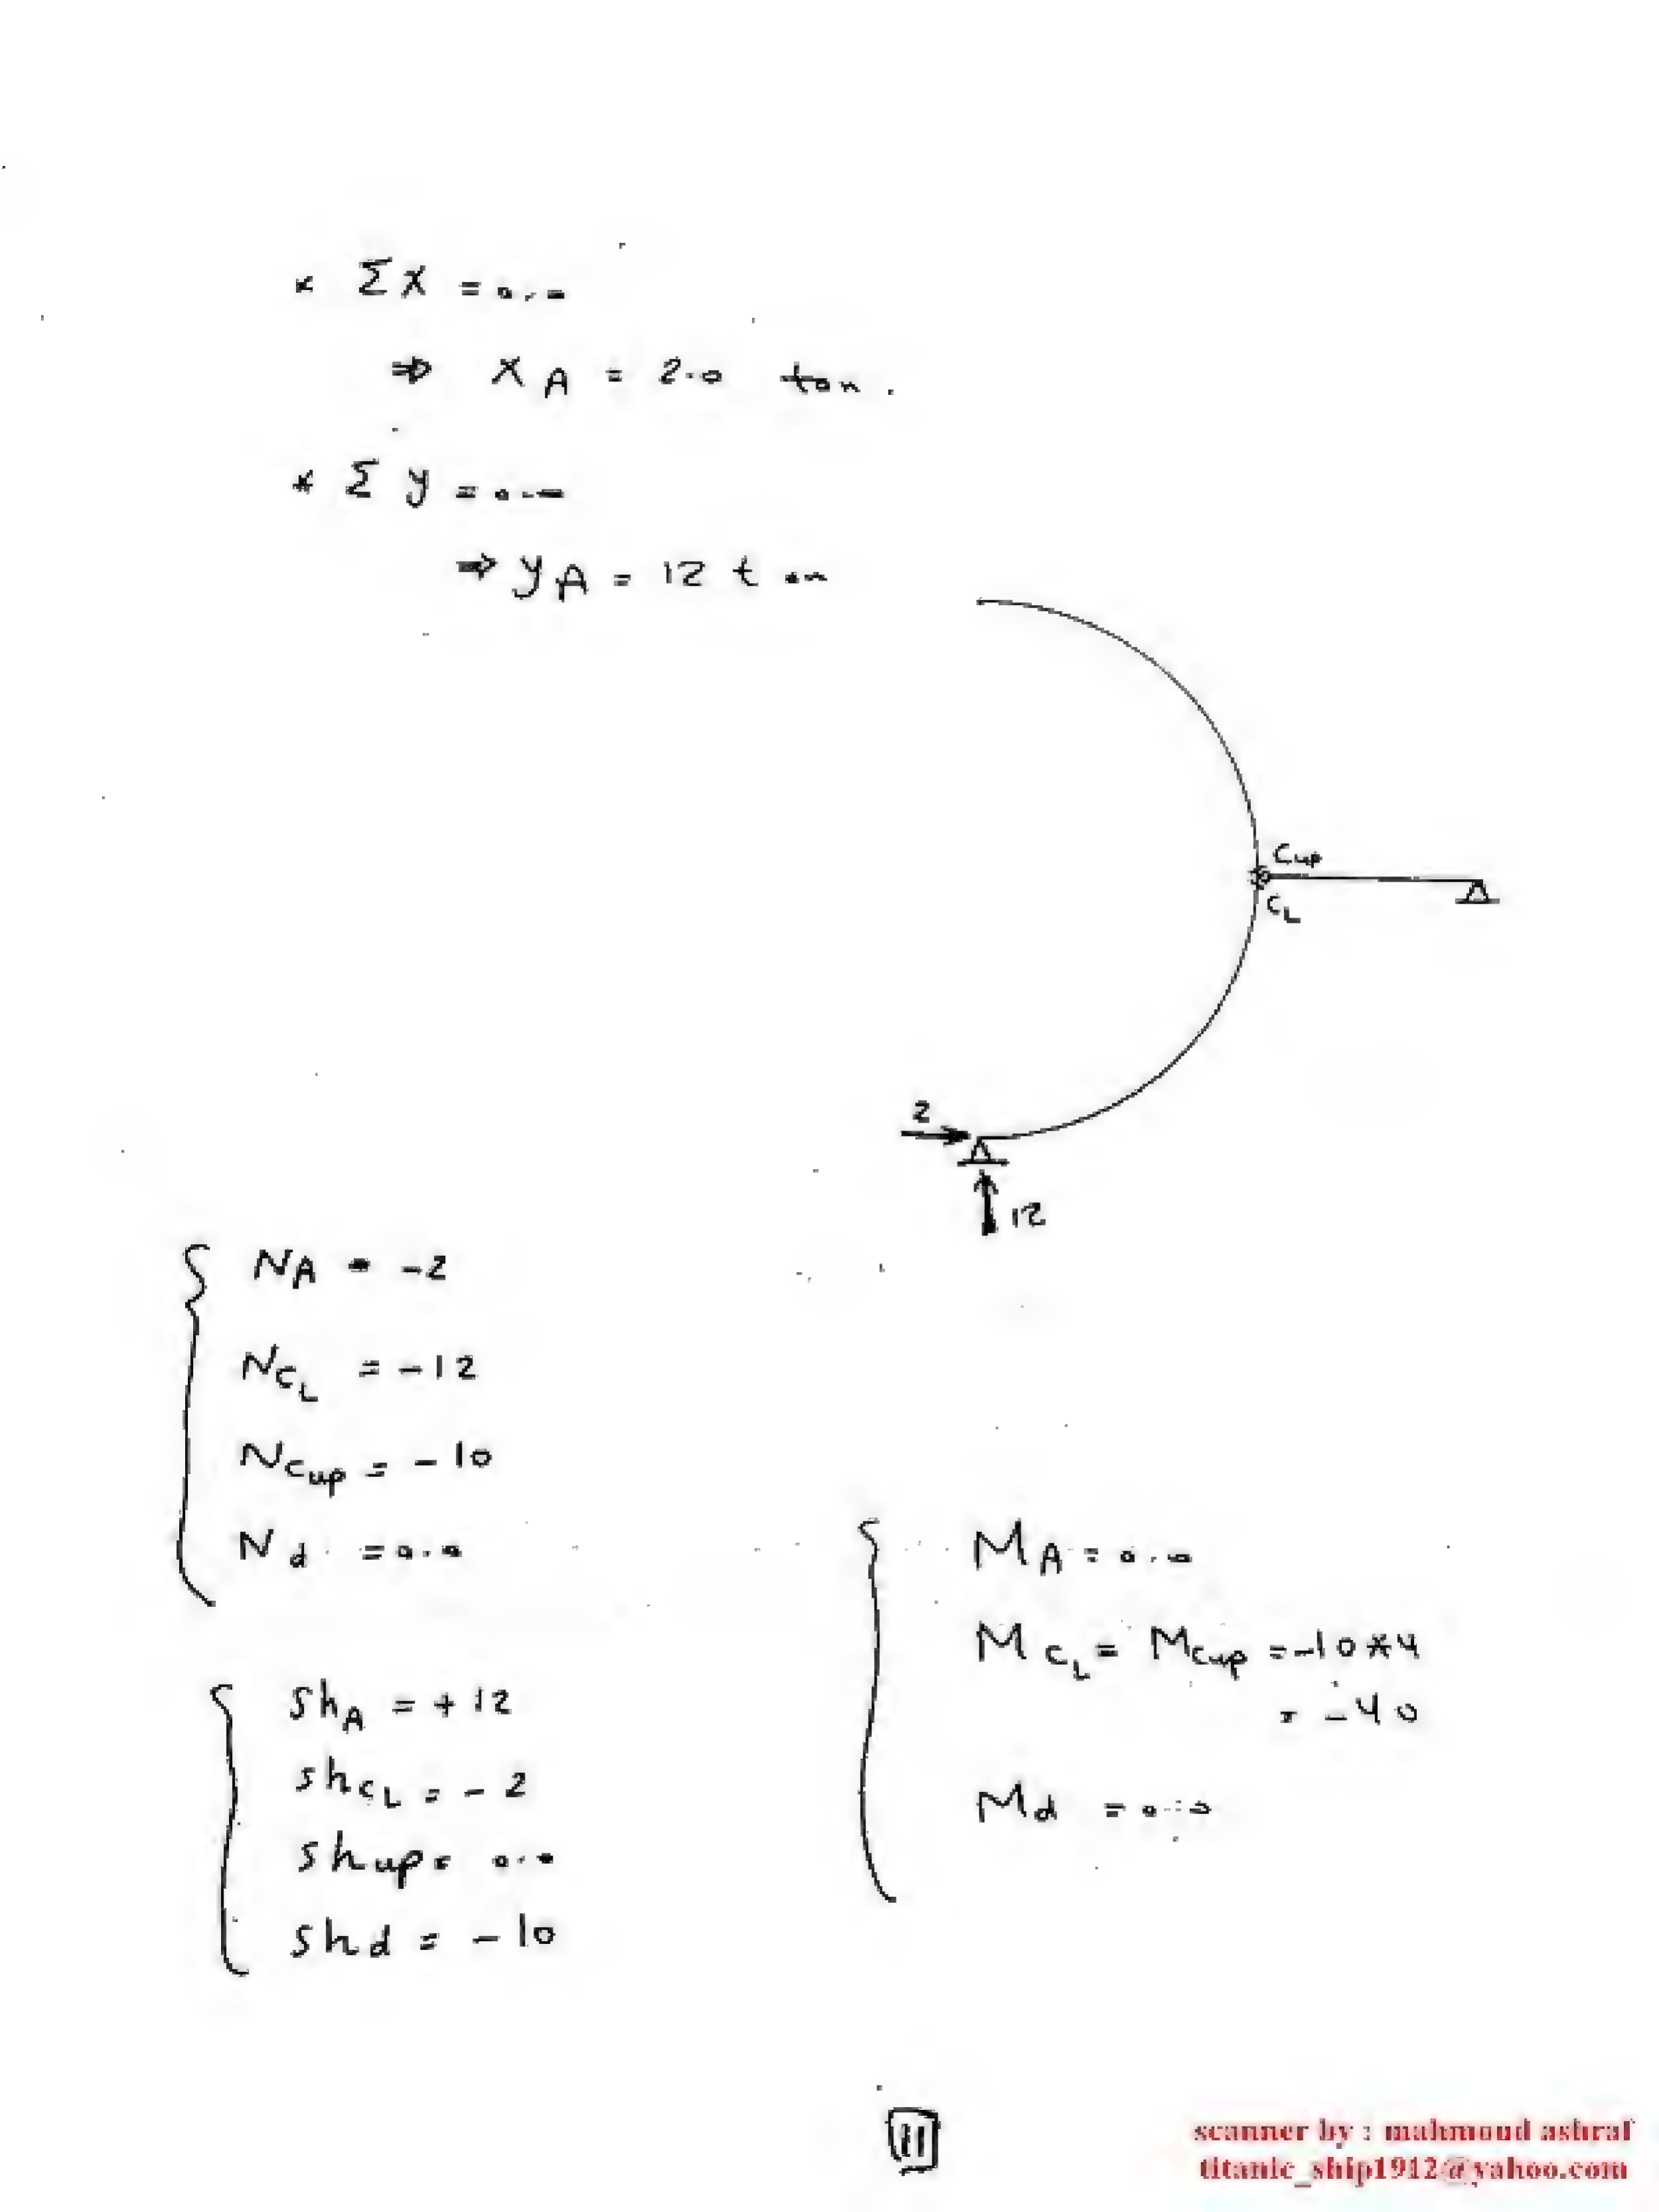 * ΣX = 0.0
⇒ X A = 2.0 ton.
* Σ y = 0.0
⇒ y A = 12 ton
Cup
CL
2
12
NA = -2
NCL = -12
NCup = -10
Nd = 0.0
ShA = +12
shCL = -2
shup = 0.0
Shd = -10
MA = 0.0
MCL = MCup = -10*4
= -40
Md = 0.0
11
scanner by : mahmoud ashraf
titanic_ship1912@yahoo.com